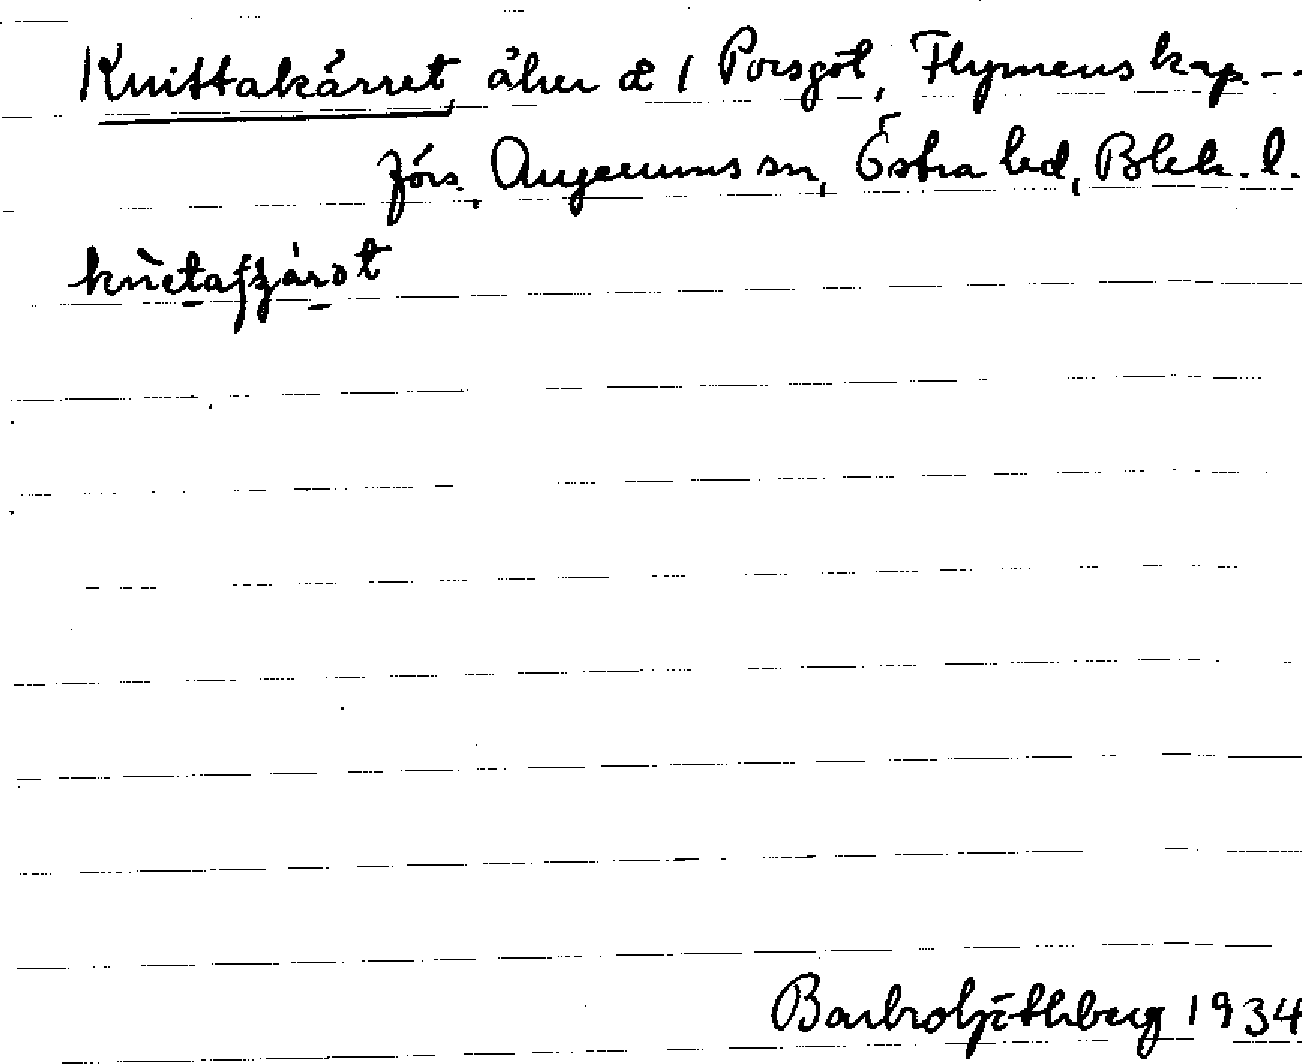 Knittakärret, åker å 1 Porsgöl, Flymens kap--
förs. Augerums sn, Östra hd, Blek. l.
Barbro Hjöthberg 1934